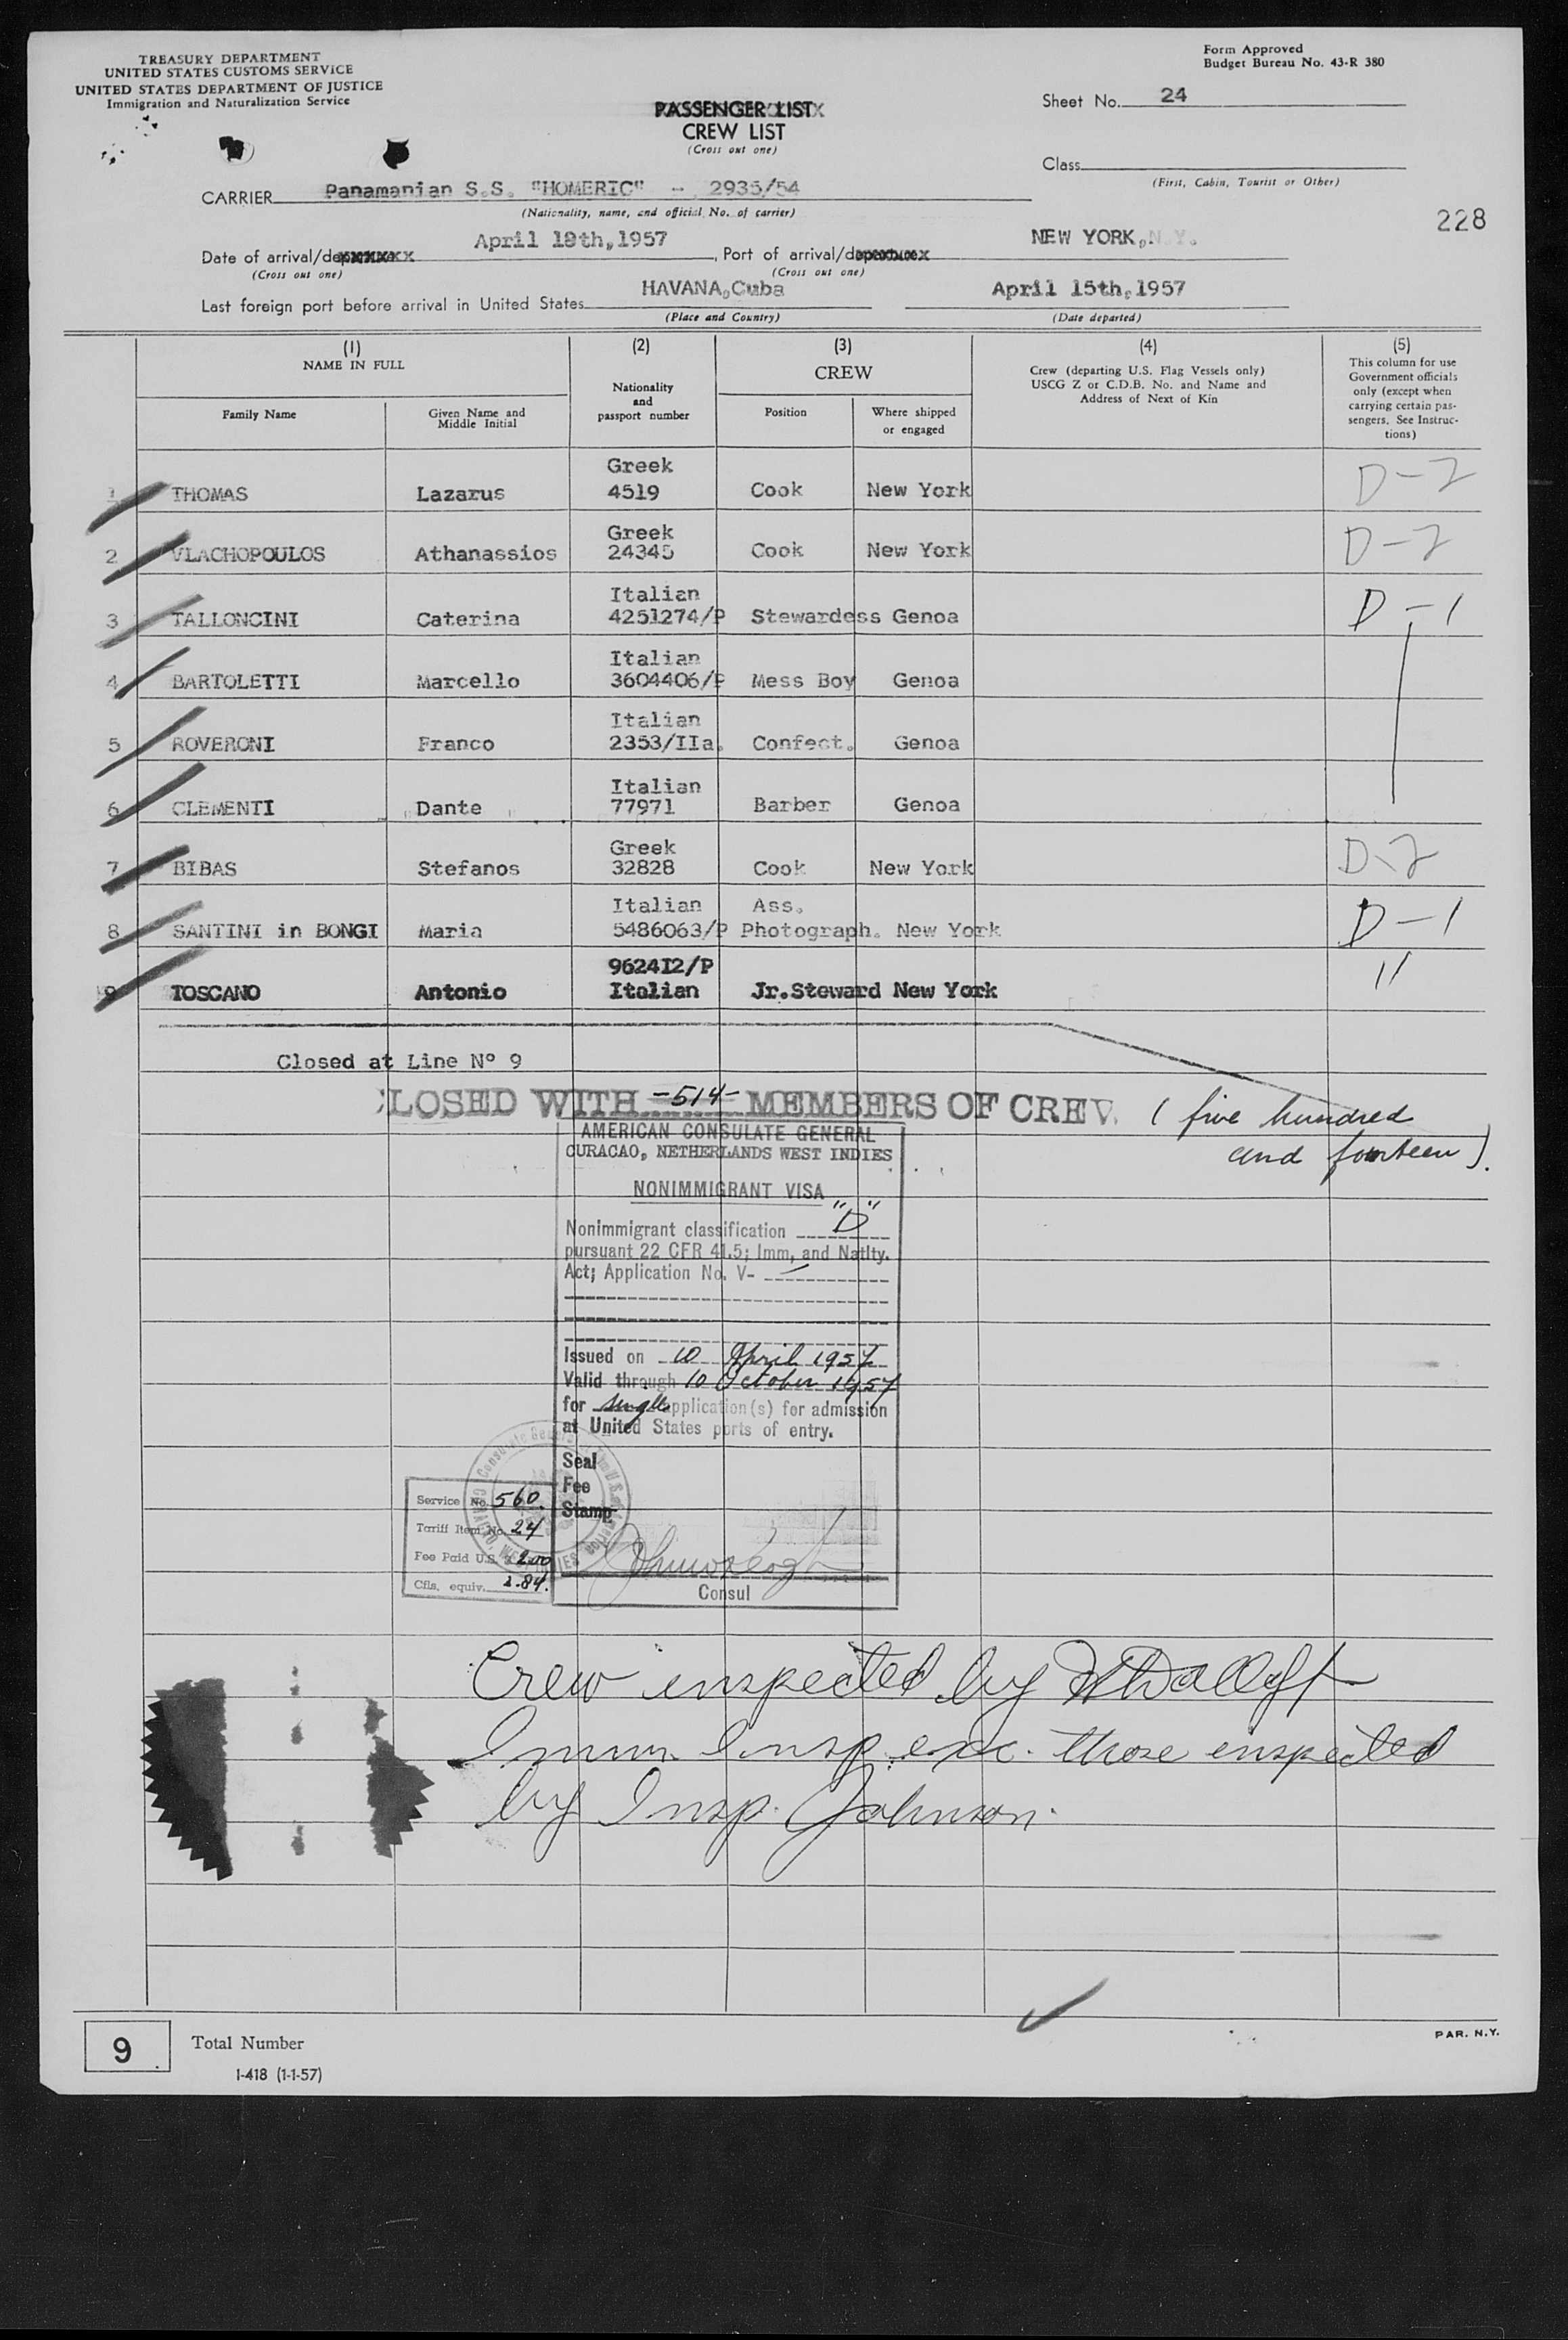 TREASURY DEPARTMENT
UNITED STATES CUSTOMS SERVICE
UNITED STATES DEPARTMENT OF JUSTICE
Immigration and Naturalization Service
Form Approved
Budget Bureau No. 43-R 380
PASSENGER LIST
CREW LIST
(Cross out one)
Sheet No. 24
Class
(First, Cabin, Tourist or Other)
CARRIER Panamanian S.S. "HOMERIC" - 2935/54
(Nationality, name, and official No. of carrier)
228
Date of arrival/departure April 18th,1957, Port of arrival/departure NEW YORK,N.Y.
(Cross out one) (Cross out one)
Last foreign port before arrival in United States HAVANA,Cuba April 15th,1957
(Place and Country) (Date departed)
(1) (2) (3) (4) (5)
NAME IN FULL
Family Name
Given Name and Middle Initial
Nationality and passport number
CREW
Position
Where shipped or engaged
Crew (departing U.S. Flag Vessels only)
USCG Z or C.D.B. No. and Name and
Address of Next of Kin
This column for use
Government officials
only (except when
carrying certain pas-
sengers. See Instruc-
tions)
Greek
1 THOMAS Lazarus 4519 Cook New York D-2
Greek
2 VLACHOPOULOS Athanassios 24345 Cook New York D-2
Italian
3 TALLONCINI Caterina 4251274/P Stewardess Genoa D-1
Italian
4 BARTOLETTI Marcello 3604406/P Mess Boy Genoa
Italian
5 ROVERONI Franco 2353/IIa. Confect. Genoa
Italian
6 CLEMENTI Dante 77971 Barber Genoa
Greek
7 BIBAS Stefanos 32828 Cook New York D-2
Italian Ass.
8 SANTINI in BONGI Maria 5486063/P Photograph. New York D-1
9624I2/P
9 TOSCANO Antonio Italian Jr.Steward New York "
Closed at Line Nº 9
CLOSED WITH -514- MEMBERS OF CREW. (five hundred
and fourteen).
AMERICAN CONSULATE GENERAL
CURACAO, NETHERLANDS WEST INDIES
NONIMMIGRANT VISA
Nonimmigrant classification "D"
pursuant 22 CFR 41.5; Imm, and Natlty.
Act; Application No. V-
Issued on 10 April 1957
Valid through 10 October 1957
for single application(s) for admission
at United States ports of entry.
Seal
Fee
Stamp
Consul
Service No. 560.
Tariff Item No. 24
Fee Paid U.S. $ 2.00
Cfls. equiv. 3.84.
Crew inspected by
Imm. Insp. exc. those inspected
by Insp. Johnson.
9 Total Number
I-418 (1-1-57)
PAR. N.Y.